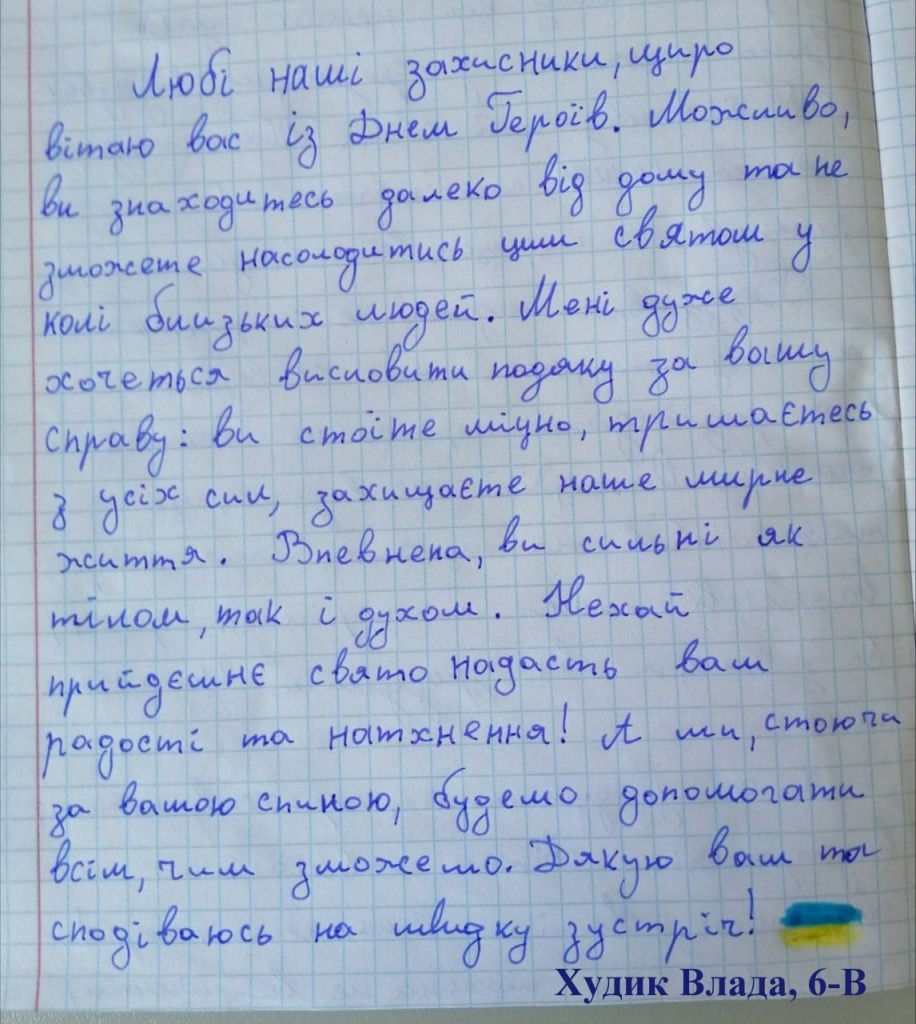 Любі наші захисники, щиро
вітаю вас із Днем Героїв. Можливо,
ви знаходитесь далеко від дому та не
зможете насолодитись цим святом у
колі близьких людей. Мені дуже
хочеться висловити подяку за вашу
справу: ви стоїте міцно, тримаєтесь
з усіх сил, захищаєте наше мирне
життя. Впевнена, ви сильні як
тілом, так і духом. Нехай
прийдєшнє свято надасть вам
радості та натхнення! А ми, стоючи
за вашою спиною, будемо допомогати
всім, чим зможемо. Дякую вам та
сподіваюсь на швидку зустріч!
Худик Влада, 6-В